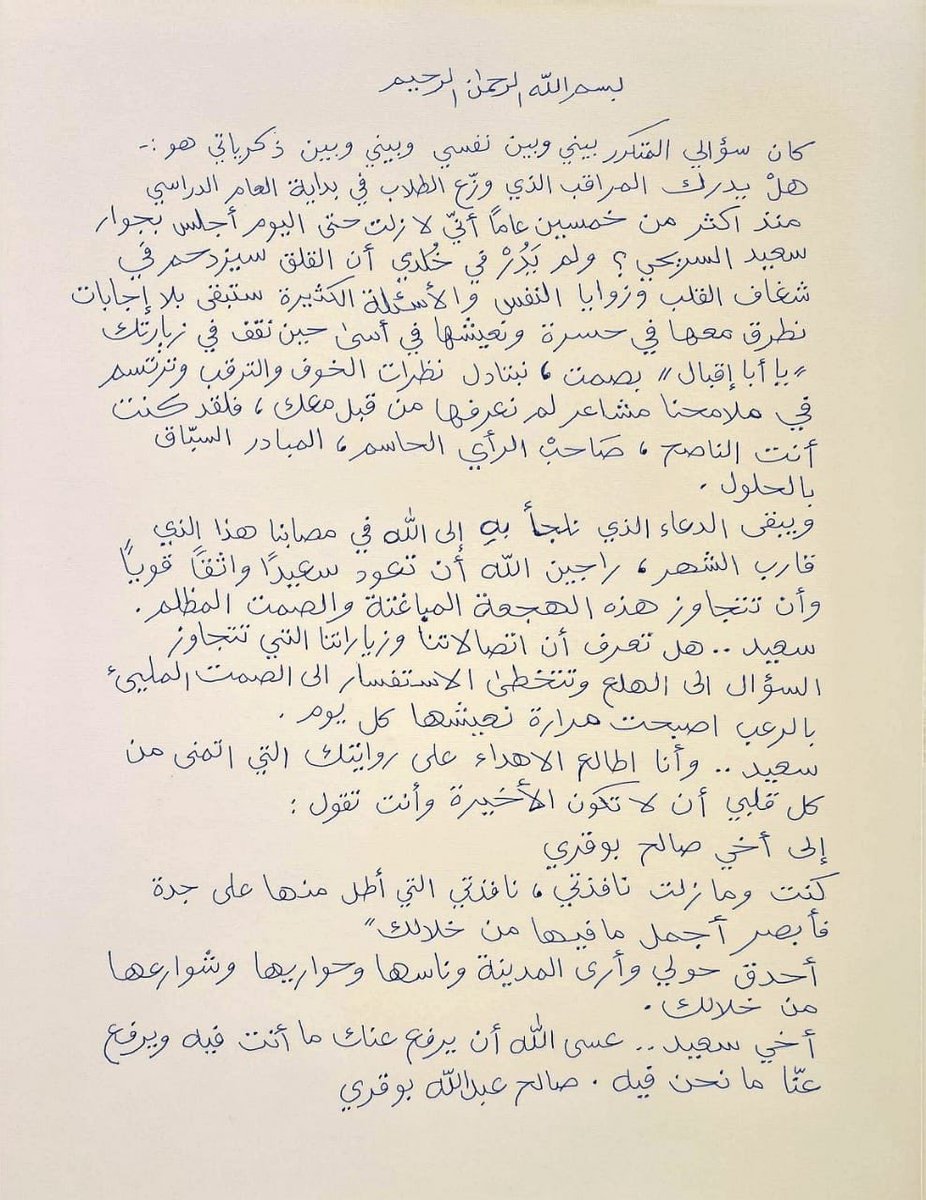 بسم الله الرحمن الرحيم
كان سؤالي المتكرر بيني وبين نفسي وبيني وبين ذكرياتي هو :-
هلْ يدرك المراقب الذي وزّع الطلاب في بداية العام الدراسي
منذ اكثر من خمسين عاماً أنّي لا زلت حتى اليوم أجلس بجوار
سعيد السريحي ؟ ولم يَدُرْ في خُلدي أن القلق سيزدحم في
شغاف القلب وزوايا النفس والأسئلة الكثيرة ستبقى بلا إجابات
نطرق معها في حسرة ونعيشها في أسىٰ حين نقف في زيارتك
"يا أبا إقبال" بصمت ، نبتادل نظرات الخوف والترقب وترتسم
في ملامحنا مشاعر لم نعرفها من قبل معك ، فلقد كنت
أنت الناصح ، صَاحبْ الرأي الحاسم ، المبادر السبّاق
بالحلول .
ويبقى الدعاء الذي نلجأ بهِ إلى الله في مصابنا هذا الذي
قارب الشهر ، راجين الله أن تعود سعيدًا واثقًا قويًا
وأن تتجاوز هذه الهجعة المباغتة والصمت المظلم .
سعيد .. هل تعرف أن اتصالاتنا وزياراتنا التي تتجاوز
السؤال الى الهلع وتتخطىٰ الاستفسار الى الصمت المليئ
بالرعب اصبحت مرارة نعيشها كل يوم .
سعيد .. وأنا اطالع الاهداء على روايتك التي اتمنى من
كل قلبي أن لا تكون الأخيرة وأنت تقول :
إلى أخي صالح بوقري
كنت وما زلت نافذتي ، نافذتي التي أطل منها على جدة
فأبصر أجمل مافيها من خلالك"
أحدق حولي وأرى المدينة وناسها وحواريها وشوارعها
من خلالك .
أخي سعيد .. عسى الله أن يرفع عنك ما أنت فيه ويرفع
عنّا ما نحن فيه . صالح عبدالله بوقري